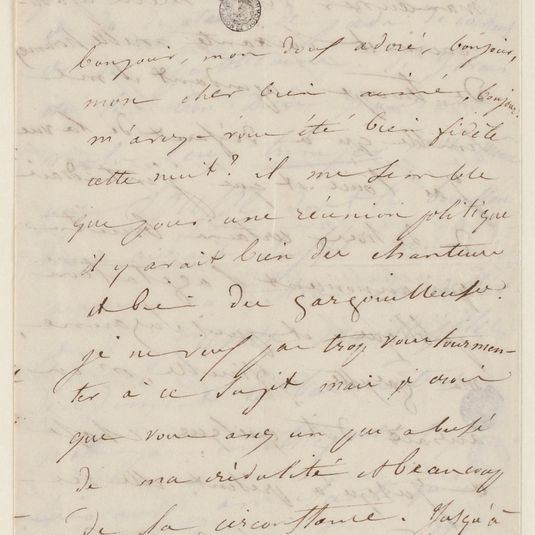 bonjour, mon doux adoré, bonjour,
mon cher bien aimé, bonjour.
m'avez-vous été bien fidèle
cette nuit ? il me semble
que pour une réunion politique
il y avait bien des chanteurs
et bien des gargouilleuses.
je ne veux pas trop vous tourmen-
ter à ce sujet mais je crois
que vous avez un peu abusé
de ma crédulité et beaucoup
de la circonstance. Jusqu'à